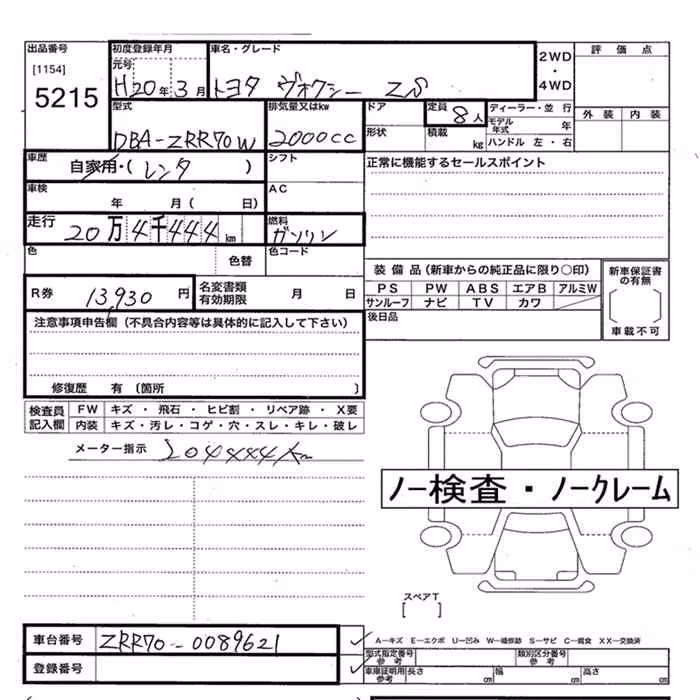 出品番号 初度登録年月 車名・グレード 2WD 評価点
[1154] 元号
5215 H20年3月 トヨタ ヴォクシー ZS ・ 4WD
型式 排気量又はkw ドア 定員 8人 ディーラー・並 行 外装 内装
DBA-ZRR70W 2000cc 形状 積載 kg モデル年式 年
ハンドル 左・右
車歴 自家用・(レンタ) シフト 正常に機能するセールスポイント
車検 年 月( 日) AC
走行 20万4千444km 燃料 ガソリン
色 色替 色コード
装備品(新車からの純正品に限り○印) 新車保証書の有無
R券 13,930円 名変書類有効期限 月 日 PS PW ABS エアB アルミW
サンルーフ ナビ TV カワ
注意事項申告欄(不具合内容等は具体的に記入して下さい) 後日品 車載不可
修復歴 有 〔箇所 〕
検査員記入欄 FW キズ・飛石・ヒビ割・リペア跡・X要
内装 キズ・汚レ・コゲ・穴・スレ・キレ・破レ
メーター指示 204444km
ノー検査・ノークレーム
スペアT
[ ]
車台番号 ZRR70-0089621 A－キズ E－エクボ U－凹み W－補修跡 S－サビ C－腐食 XX－交換済
登録番号 型式指定番号 参考 類別区分番号 参考
車庫証明用 参考 長さ cm 幅 cm 高さ cm